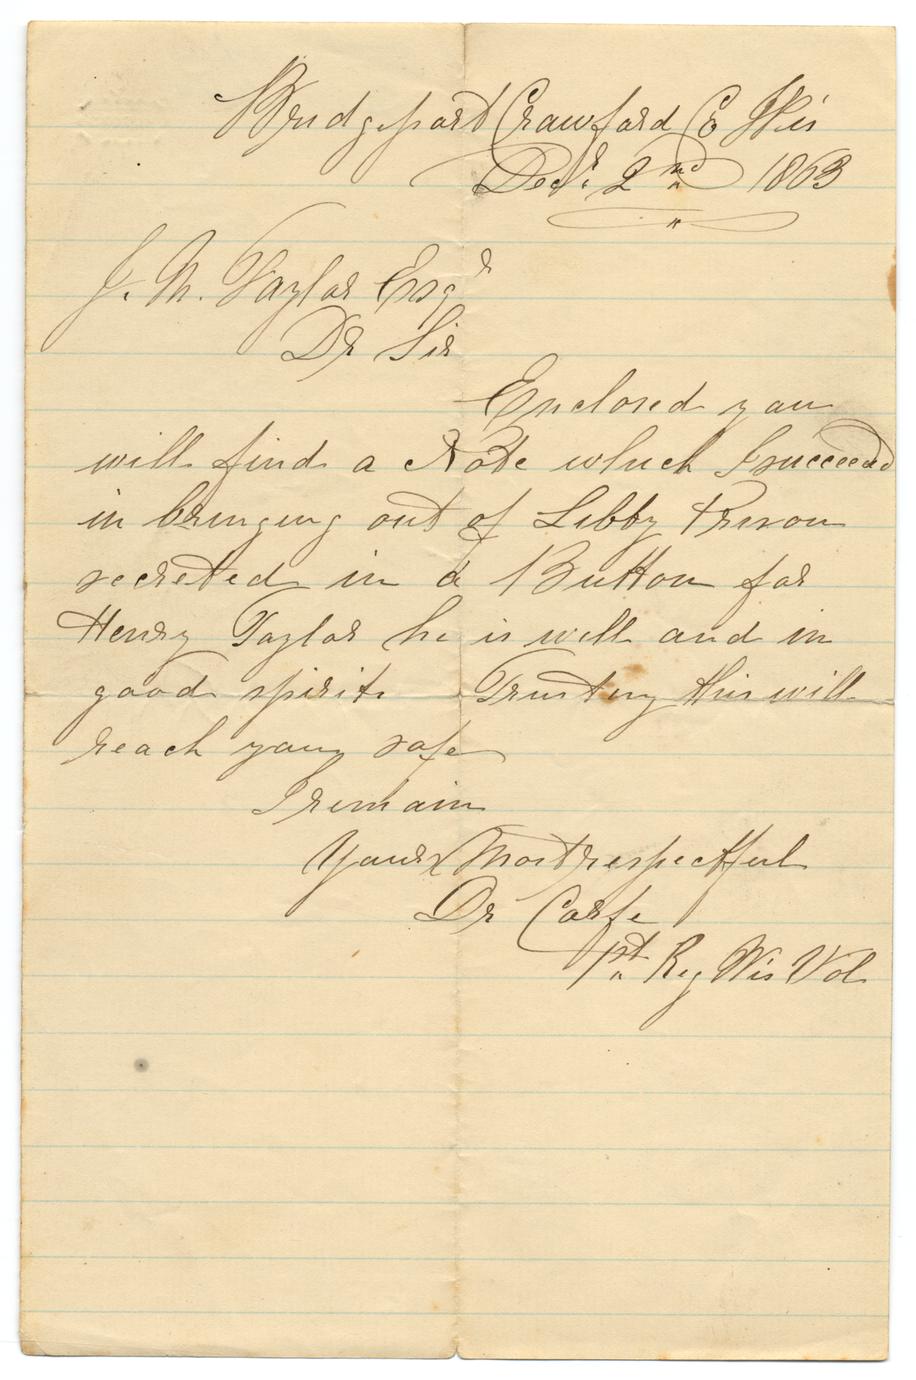 Bridgeport Crawford Co Wis
Decr. 2nd 1863
J. N. Taylor Esqr
Dr Sir
Enclosed you
will find a Note which I succeeded
in bringing out of Libby Prison
secreted in a Button for
Henry Taylor he is well and in
good spirits Trusting this will
reach you safe
I remain
Yours Most respectful
Dr
1st Reg Wis Vol